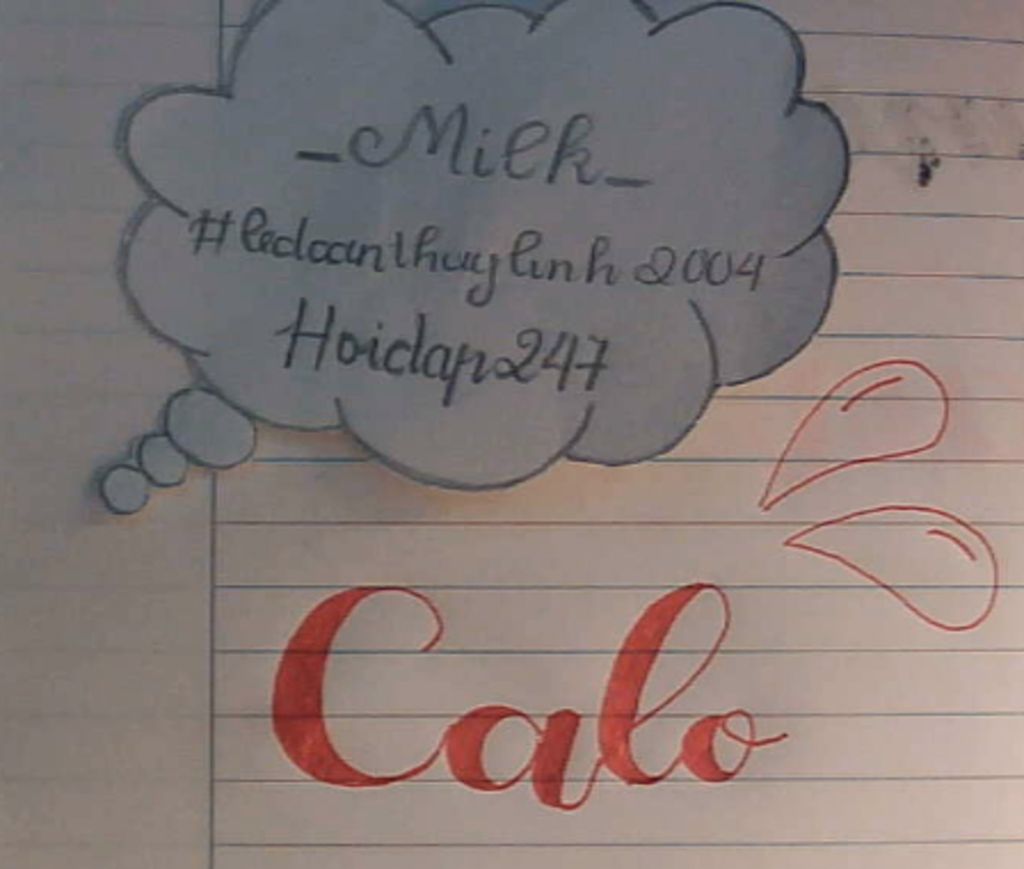 _Milk_
#ledoanthuylinh2004
Hoidap247
Calo